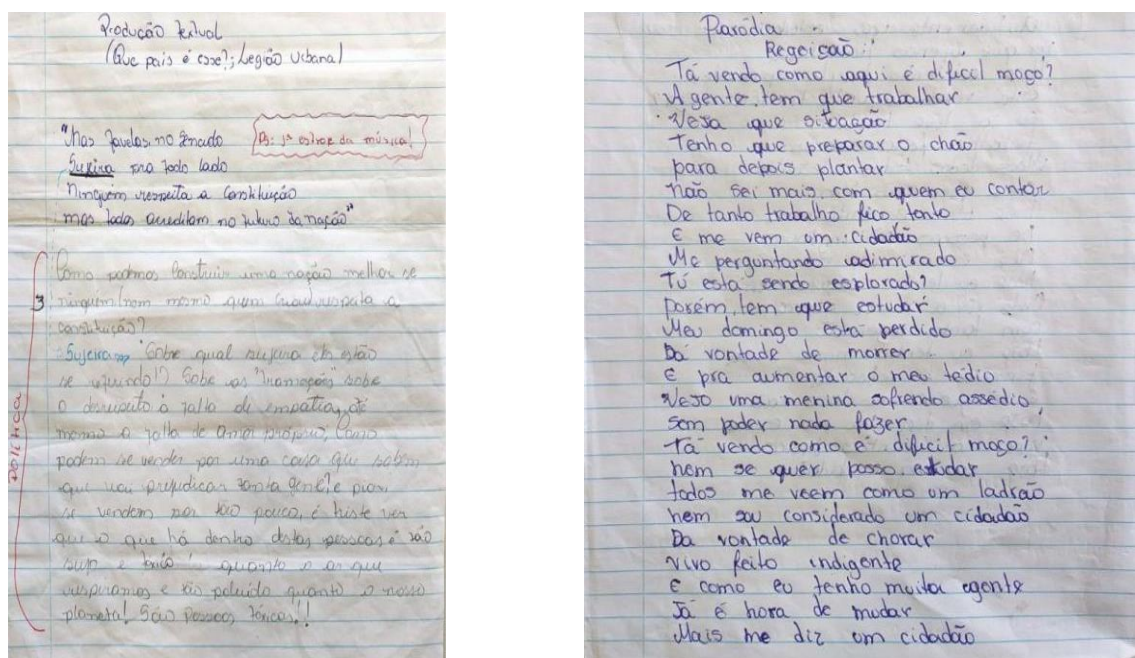 Produção textual
(Que pais é esse?; Legião Urbana)
"Nas favelas, no Senado
Ps: 1ª estrofe da música!
Sujeira pra todo lado
Ninguém respeita a Constituição
mas todos acreditam no futuro da nação"
Como podemos Construir uma nação melhor se
3 ninguém (nem mesmo quem criou) respeita a
constituição?
Sujeira Sobre qual sujeira eles estão
se referindo!? Sobre as "tramoças" sobre
o desrespeito à falta de empatia, até
mesmo a falta de Amor próprio, Como
podem se vender por uma coisa que sabem
que vai prejudicar tanta gente, e pior,
se vendem por tão pouco, é triste ver
que o que há dentro destas pessoas é tão
sujo e tóxico quanto o ar que
respiramos e tão poluído quanto o nosso
planeta! São pessoas tóxicas!!
POLITICA
Paródia
Regeição
Tá vendo como aqui é dificil moço?
A gente tem que trabalhar
Veja que situação
Tenho que preparar o chão
para depois plantar
não sei mais com quem eu contar
De tanto trabalho fico tonto
E me vem um cidadão
Me perguntando adimirado
Tú esta sendo esplorado?
porém tem que estudar
Meu domingo está perdido
Dá vontade de morrer
E pra aumentar o meu tédio
Vejo uma menina sofrendo assédio
Sem poder nada fazer
Tá vendo como é dificil moço?
nem se quer posso estudar
todos me veem como um ladrão
nem sou considerado um cidadão
Da vontade de chorar
vivo feito indigente
E como eu tenho muita agente
Já é hora de mudar
Mais me diz um cidadão